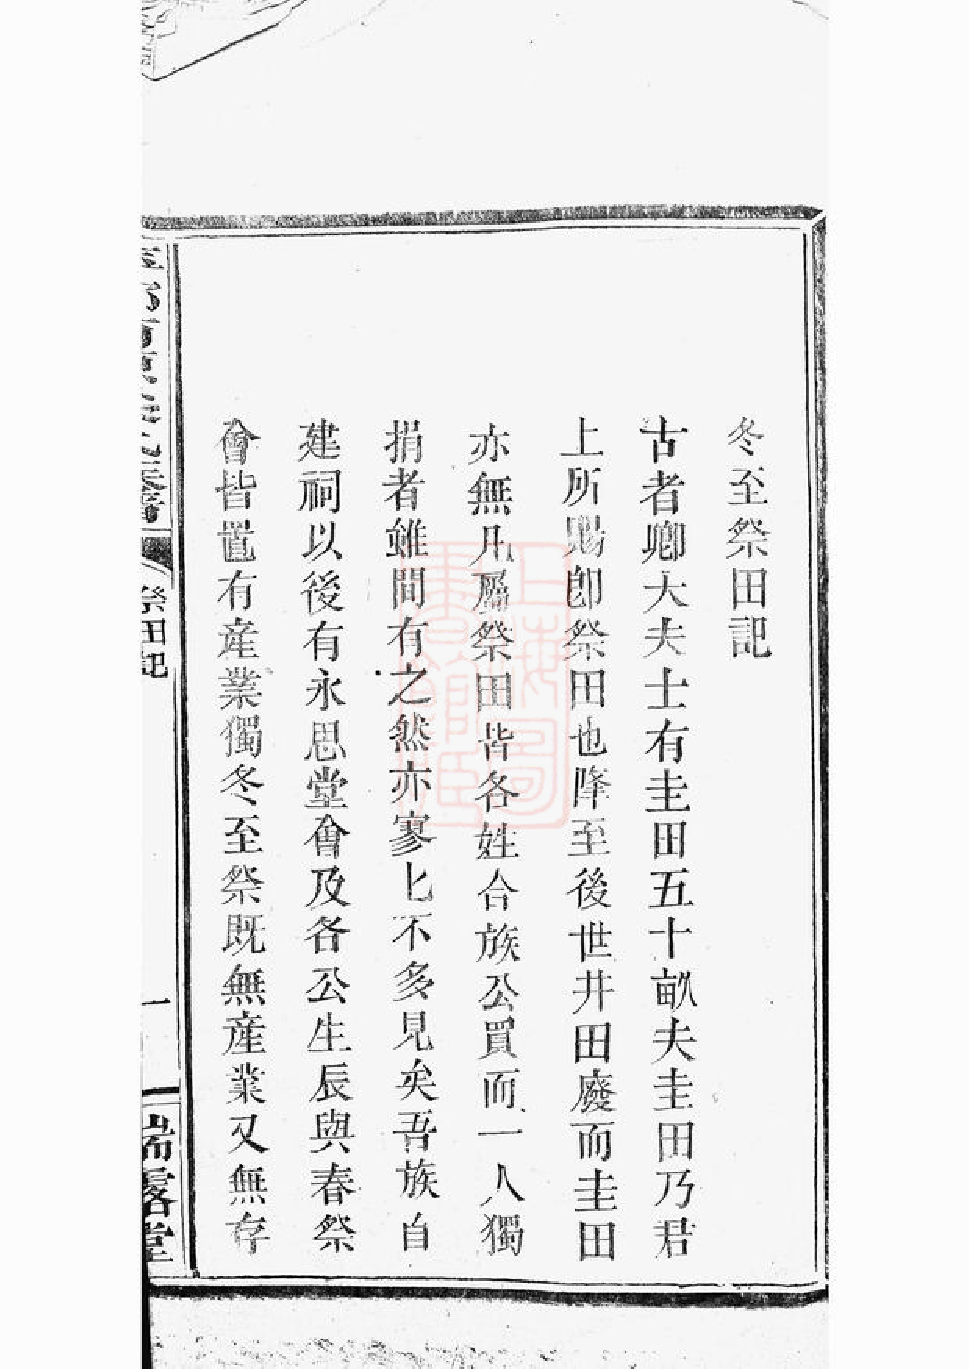 冬至祭田記
古者卿大夫士有圭田五十畝夫圭田乃君
上所賜卽祭田也降至後世井田廢而圭田
亦無凡屬祭田皆各姓合族公買而一人獨
捐者雖間有之然亦寥匕不多見矣吾族自
建祠以後有永思堂會及各公生辰與春祭
會皆置有産業獨冬至祭既無産業又無存
祭田記
一
瑞露堂
上海圖書館藏